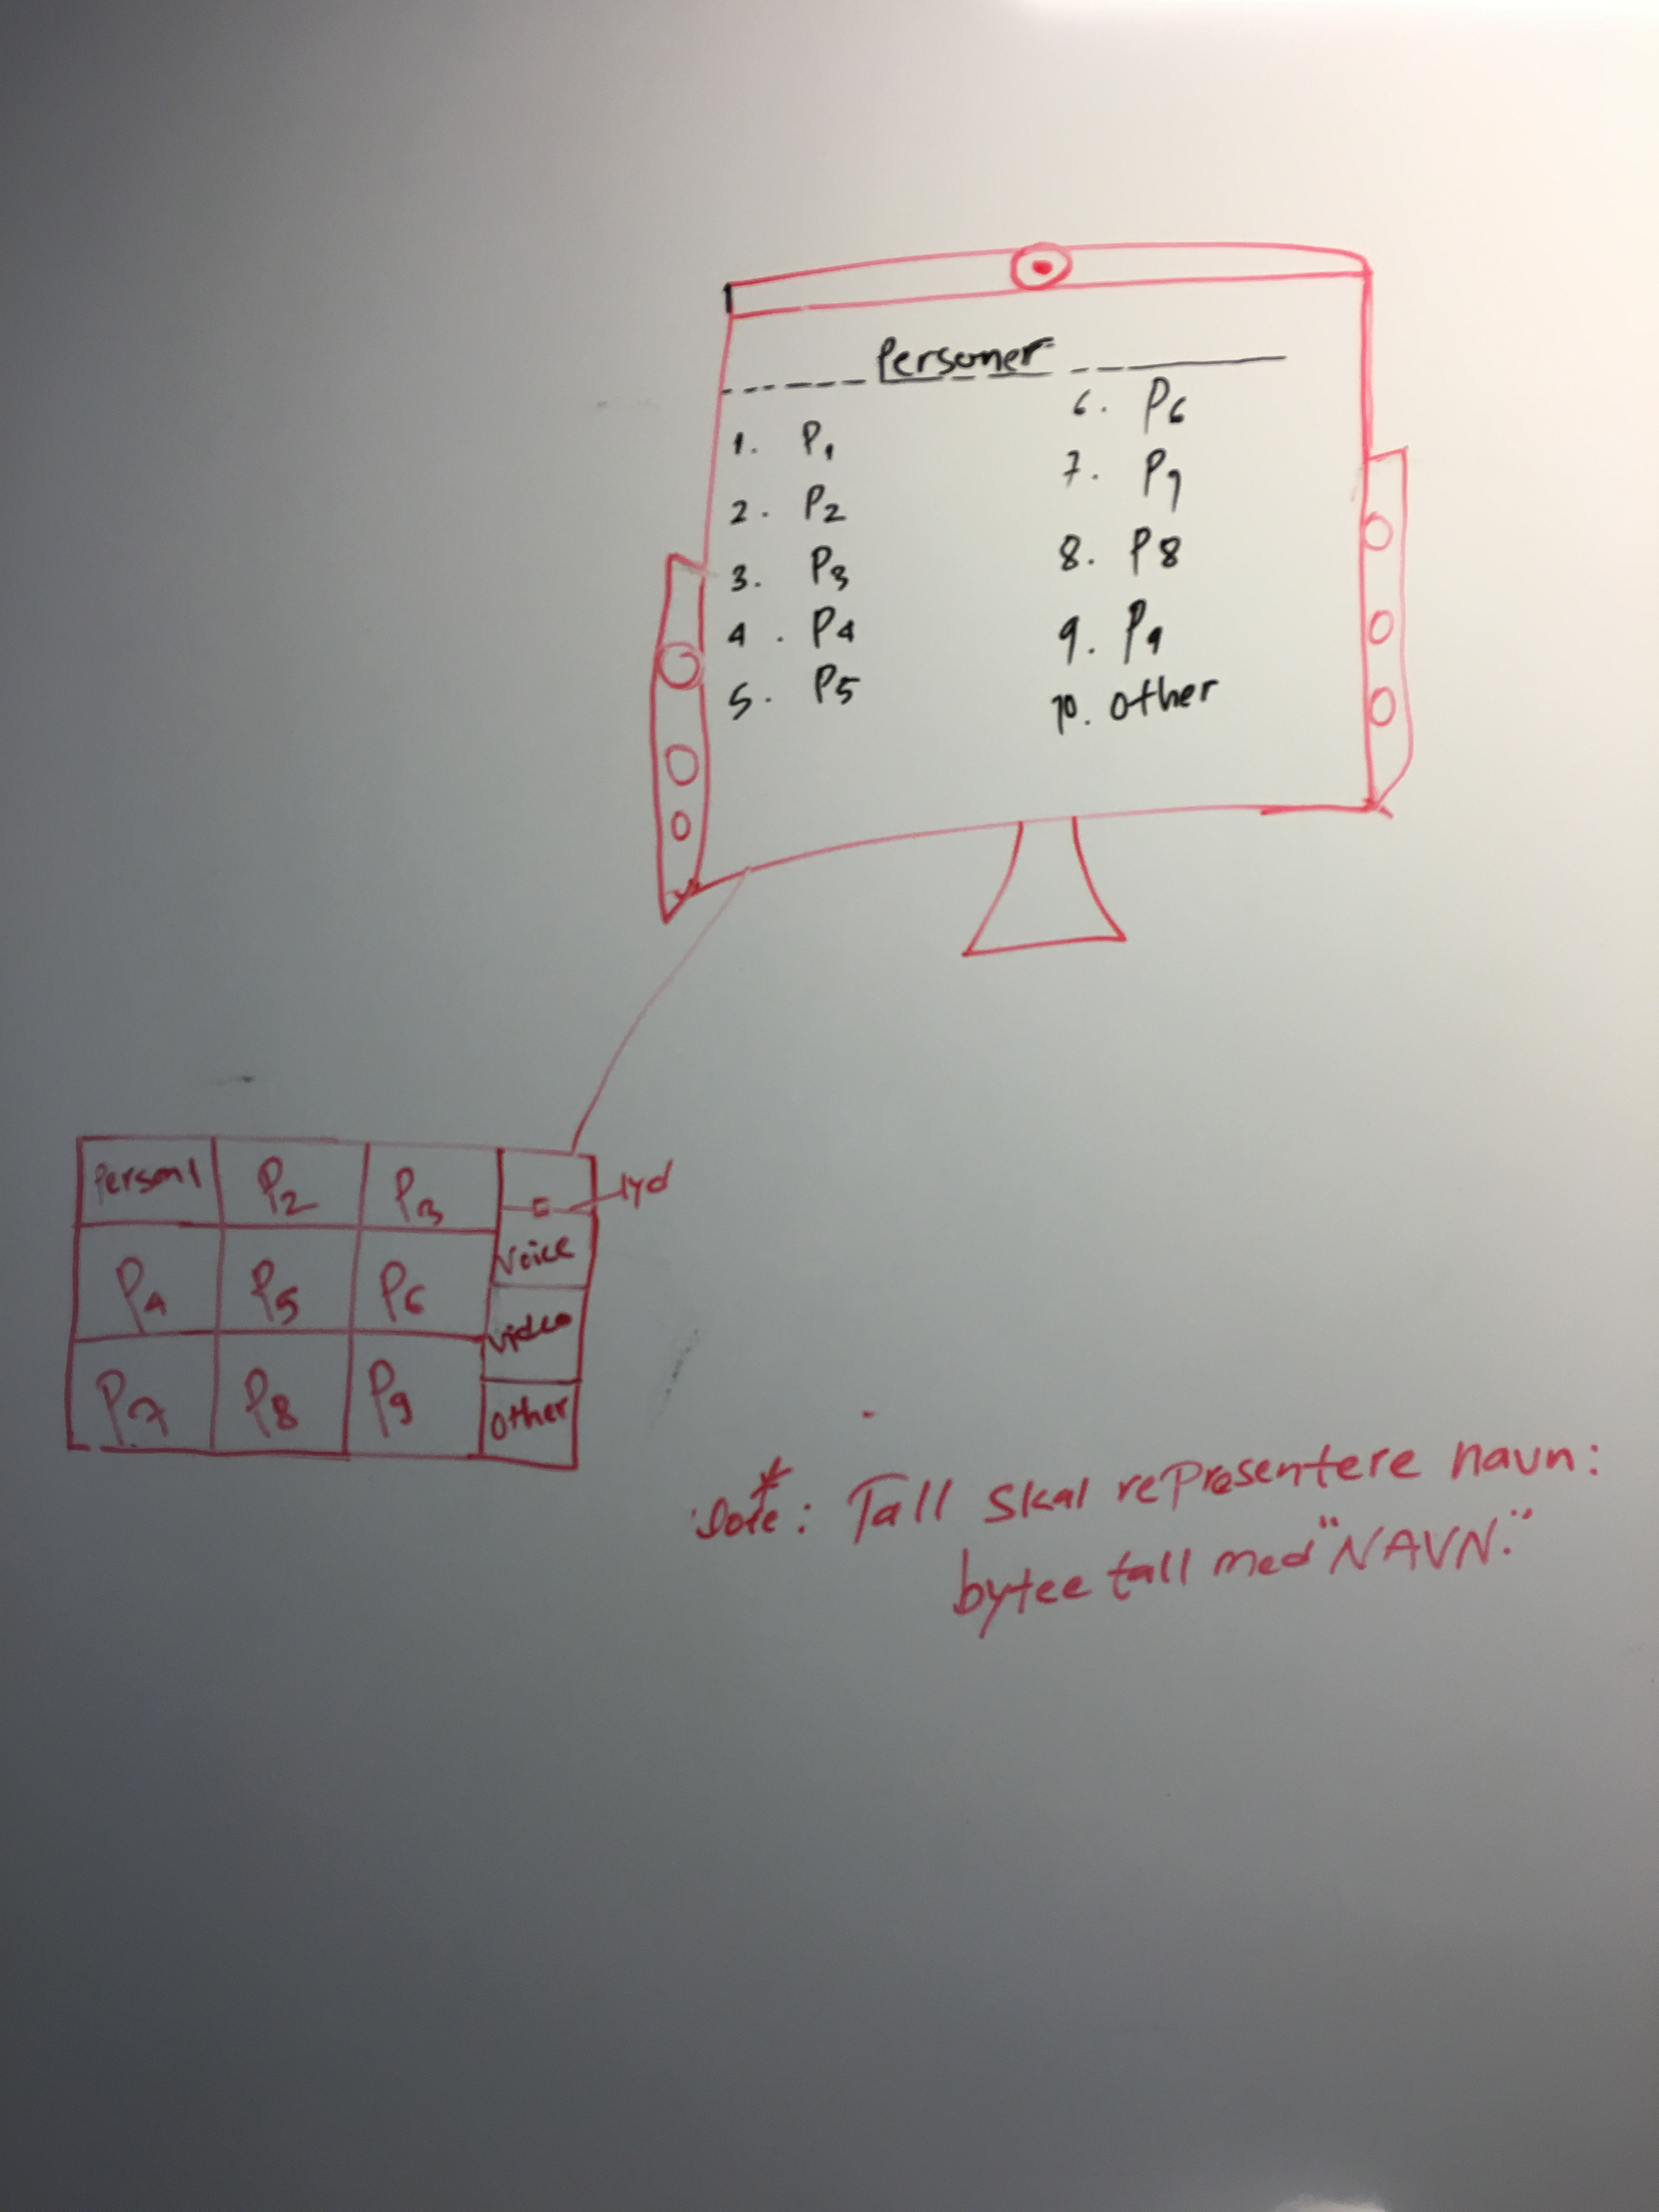 Personer
1. P1
2. P2
3. P3
4. P4
5. P5
6. P6
7. P7
8. P8
9. P9
10. other
Person1 P2 P3
lyd
P4 P5 P6
Voice
Video
P7 P8 P9
Other
*
Note: Tall skal representere navn:
bytee tall med "NAVN."